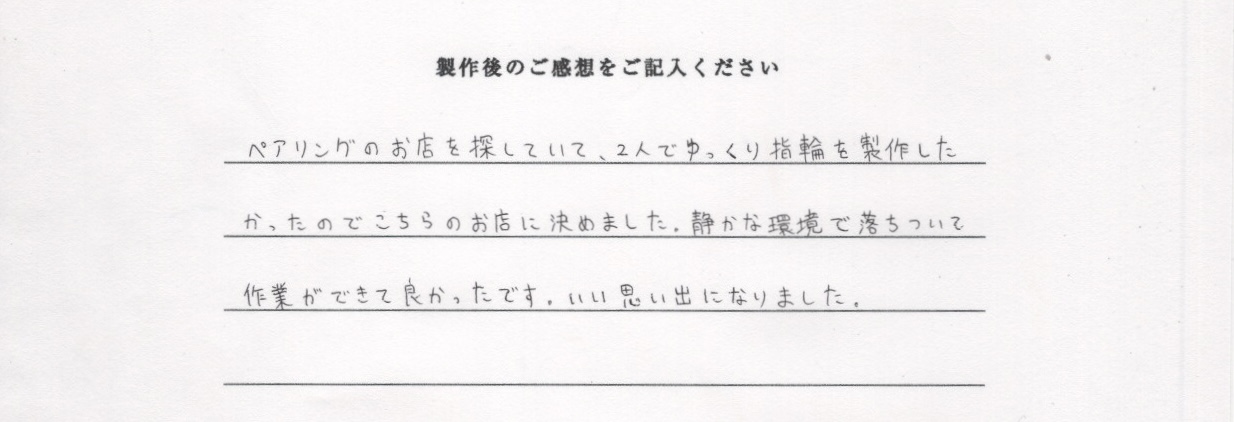 製作後のご感想をご記入ください
ペアリングのお店を探していて、2人でゆっくり指輪を製作した
かったのでこちらのお店に決めました。静かな環境で落ちついて
作業ができて良かったです。いい思い出になりました。